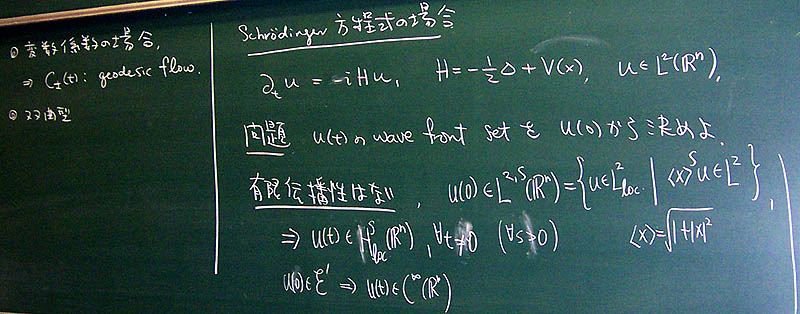 ◎ 変数係数の場合,
⇒ C±(t): geodesic flow.
◎ 双曲型
Schrödinger 方程式の場合
∂ₜu = -iHu, H = -½Δ + V(x), u ∈ L²(ℝⁿ),
問題 u(t) の wave front set を u(0) から決めよ.
有限伝播性はない, u(0) ∈ L^{2,s}(ℝⁿ) = {u ∈ L²_{loc} | ⟨x⟩^s u ∈ L²},
⇒ u(t) ∈ H^s_{loc}(ℝⁿ), ∀t≠0 (∀s>0) ⟨x⟩ = √(1+|x|²)
u(0) ∈ ℰ' ⇒ u(t) ∈ C^∞(ℝⁿ)